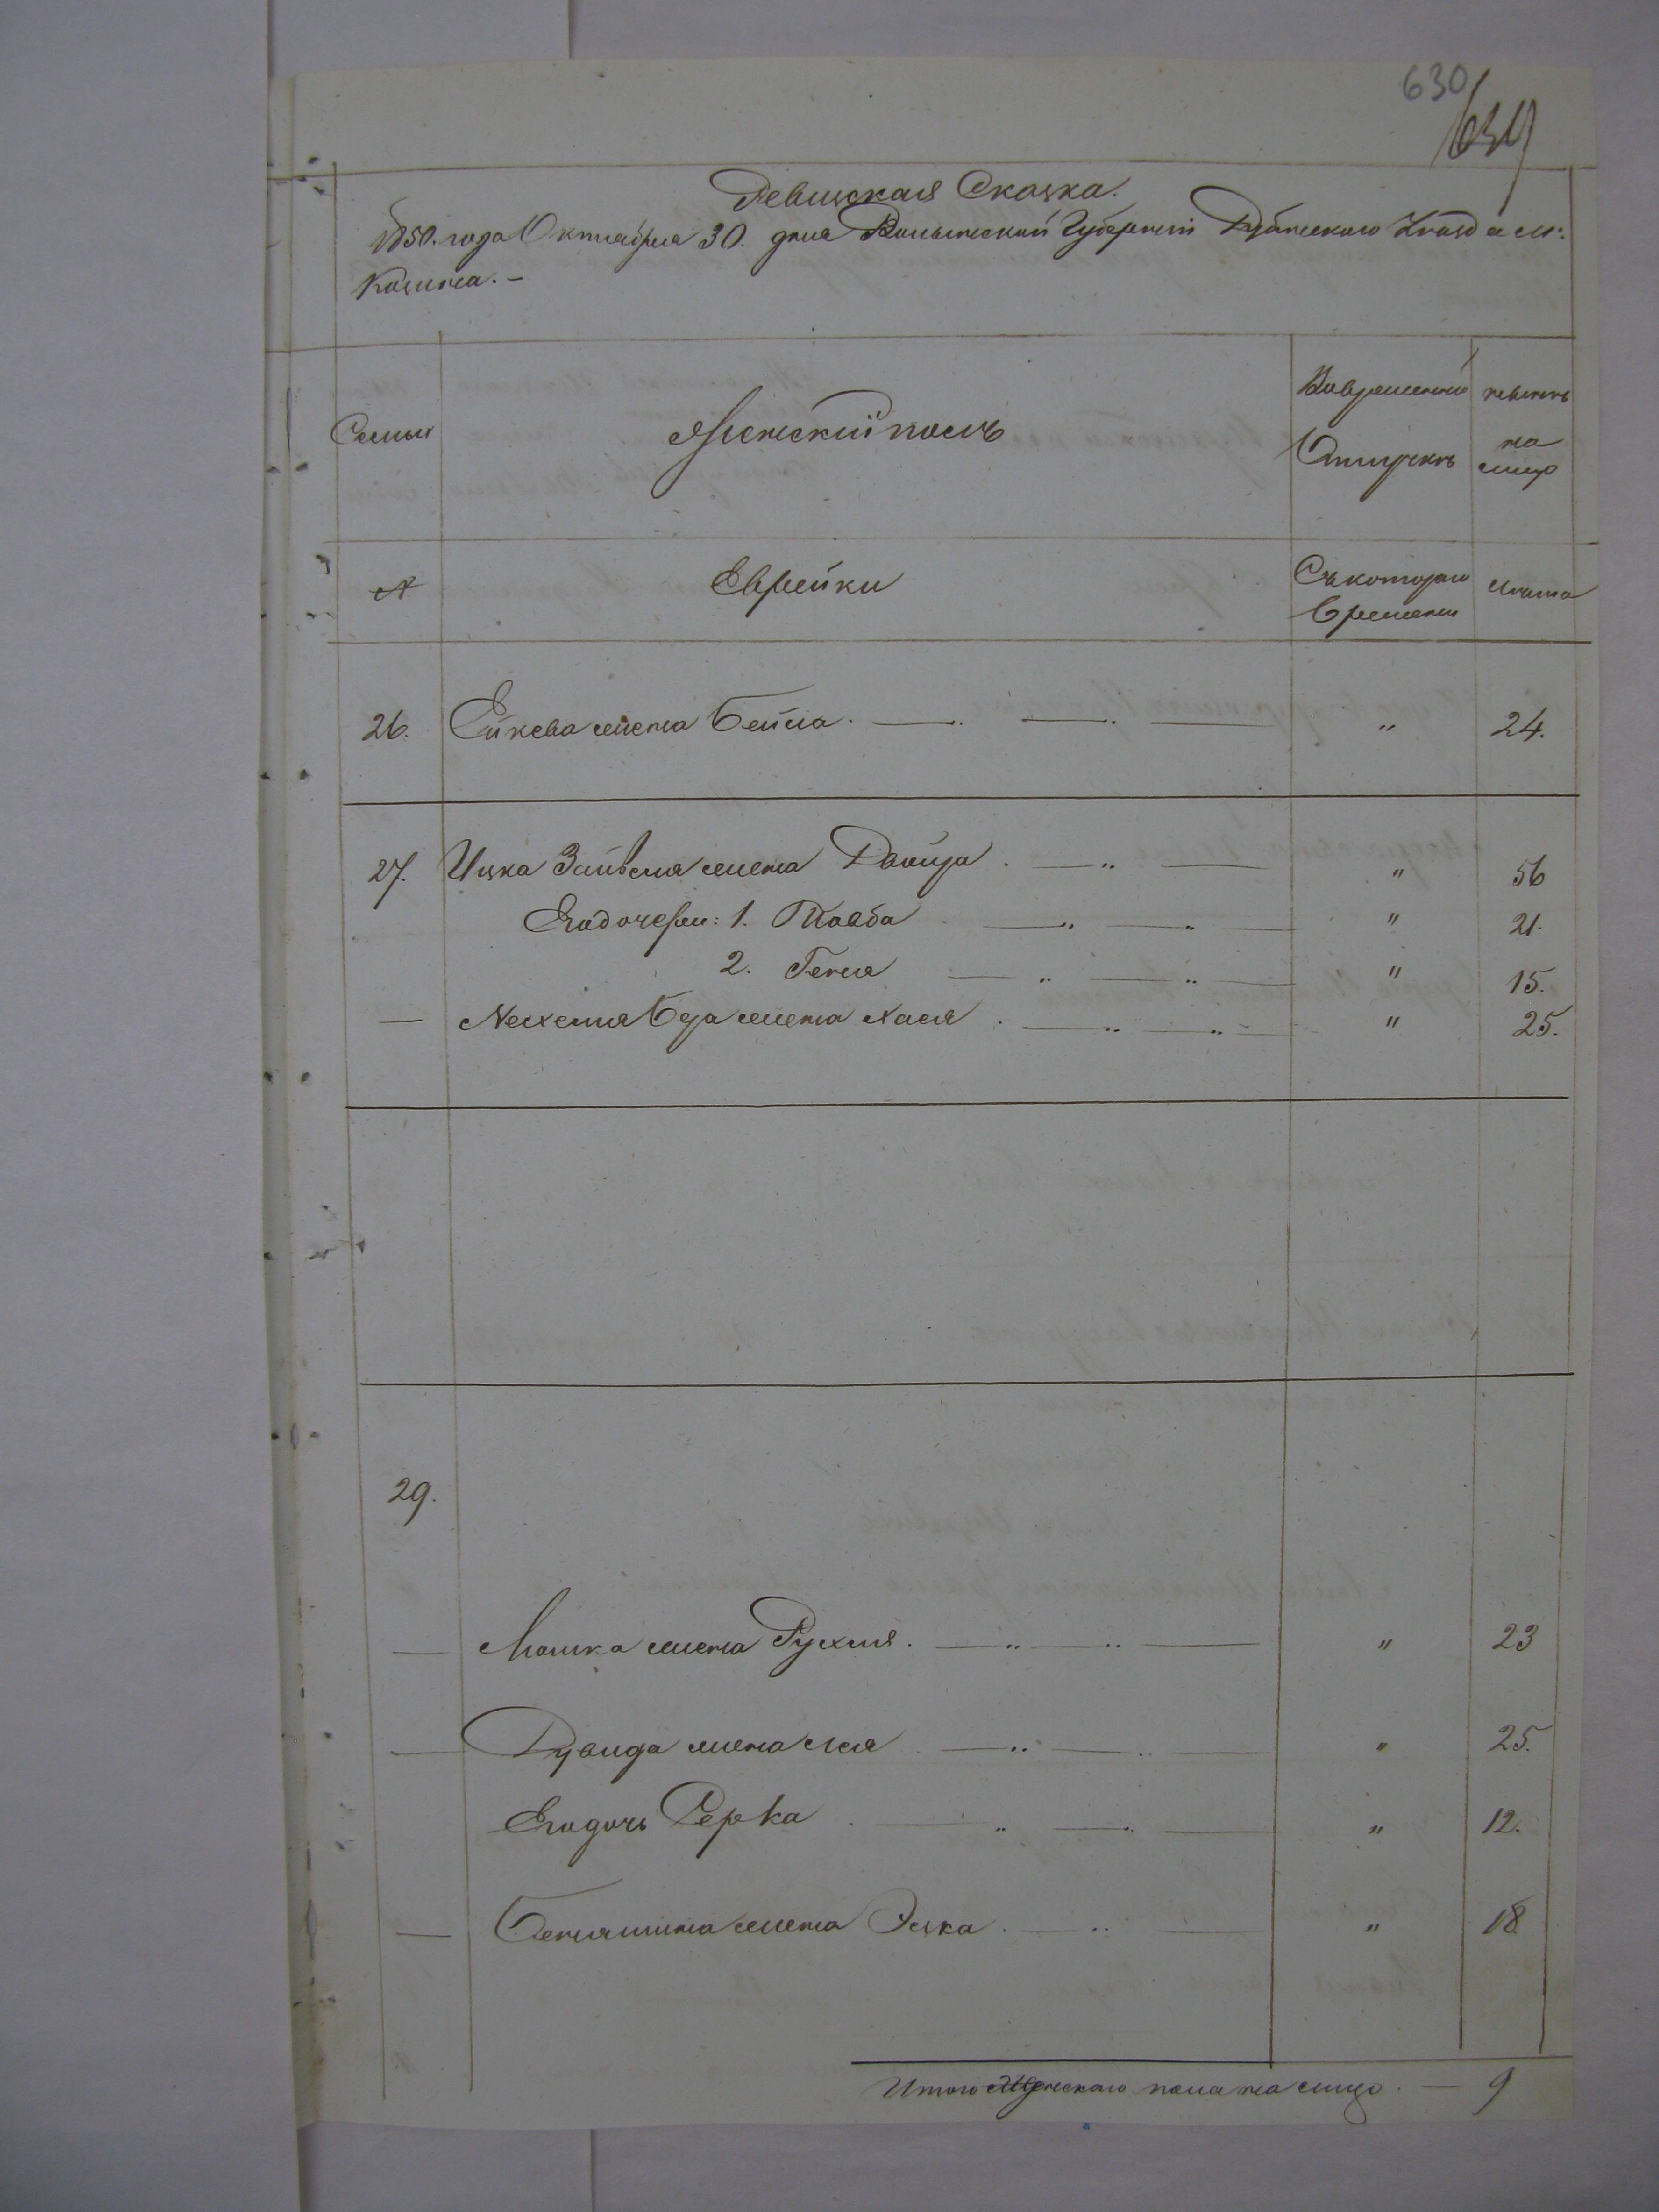 630
631
Ревиская Сказка.
1850. года Октября 30. дня Волынской Губерній Дубенского Уѣзда м:
Козина. –
Семьи
Женскій полъ
Вовременной
Отлучкѣ
нынѣ
на
лицо
№
Еврейки
Съкотораго
времени
лѣта
26. Ейкева жена Бейла. — " 24.
27. Ицка Зайвеля жена Двойра — " 56
Егодочери: 1. Товба — " 21.
2. Геня — " 15.
— Нехемя жена Хася — " 25.
29.
— Мошка жена Рухля. — " 23
— Дувида жена Лея — " 25.
Егодочь Перка — " 12.
— Беньямина жена Эстка. — " 18
Итого Женского пола на лицо. — 9